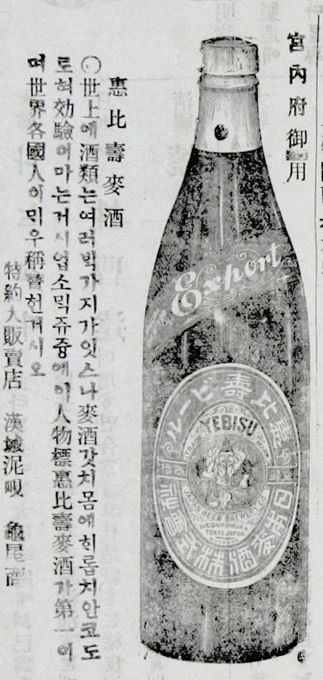 宮內府御用
惠比壽麥酒
◯世上에酒類는여러빅가지가잇스나麥酒갓치몸에히롭치안코도
로혀効驗이마는거시업소믹쥬즁에이人物標惠比壽麥酒가第一이
며世界各國人이믹우稱賛헌거시오
特約大販賣店 漢城泥峴 龜尾商
Export
惠比壽ビール
YEBISU
JAPAN BEER BREWERY CO
MEGUROMURA
TOKYO JAPAN
日本麥酒株式會社